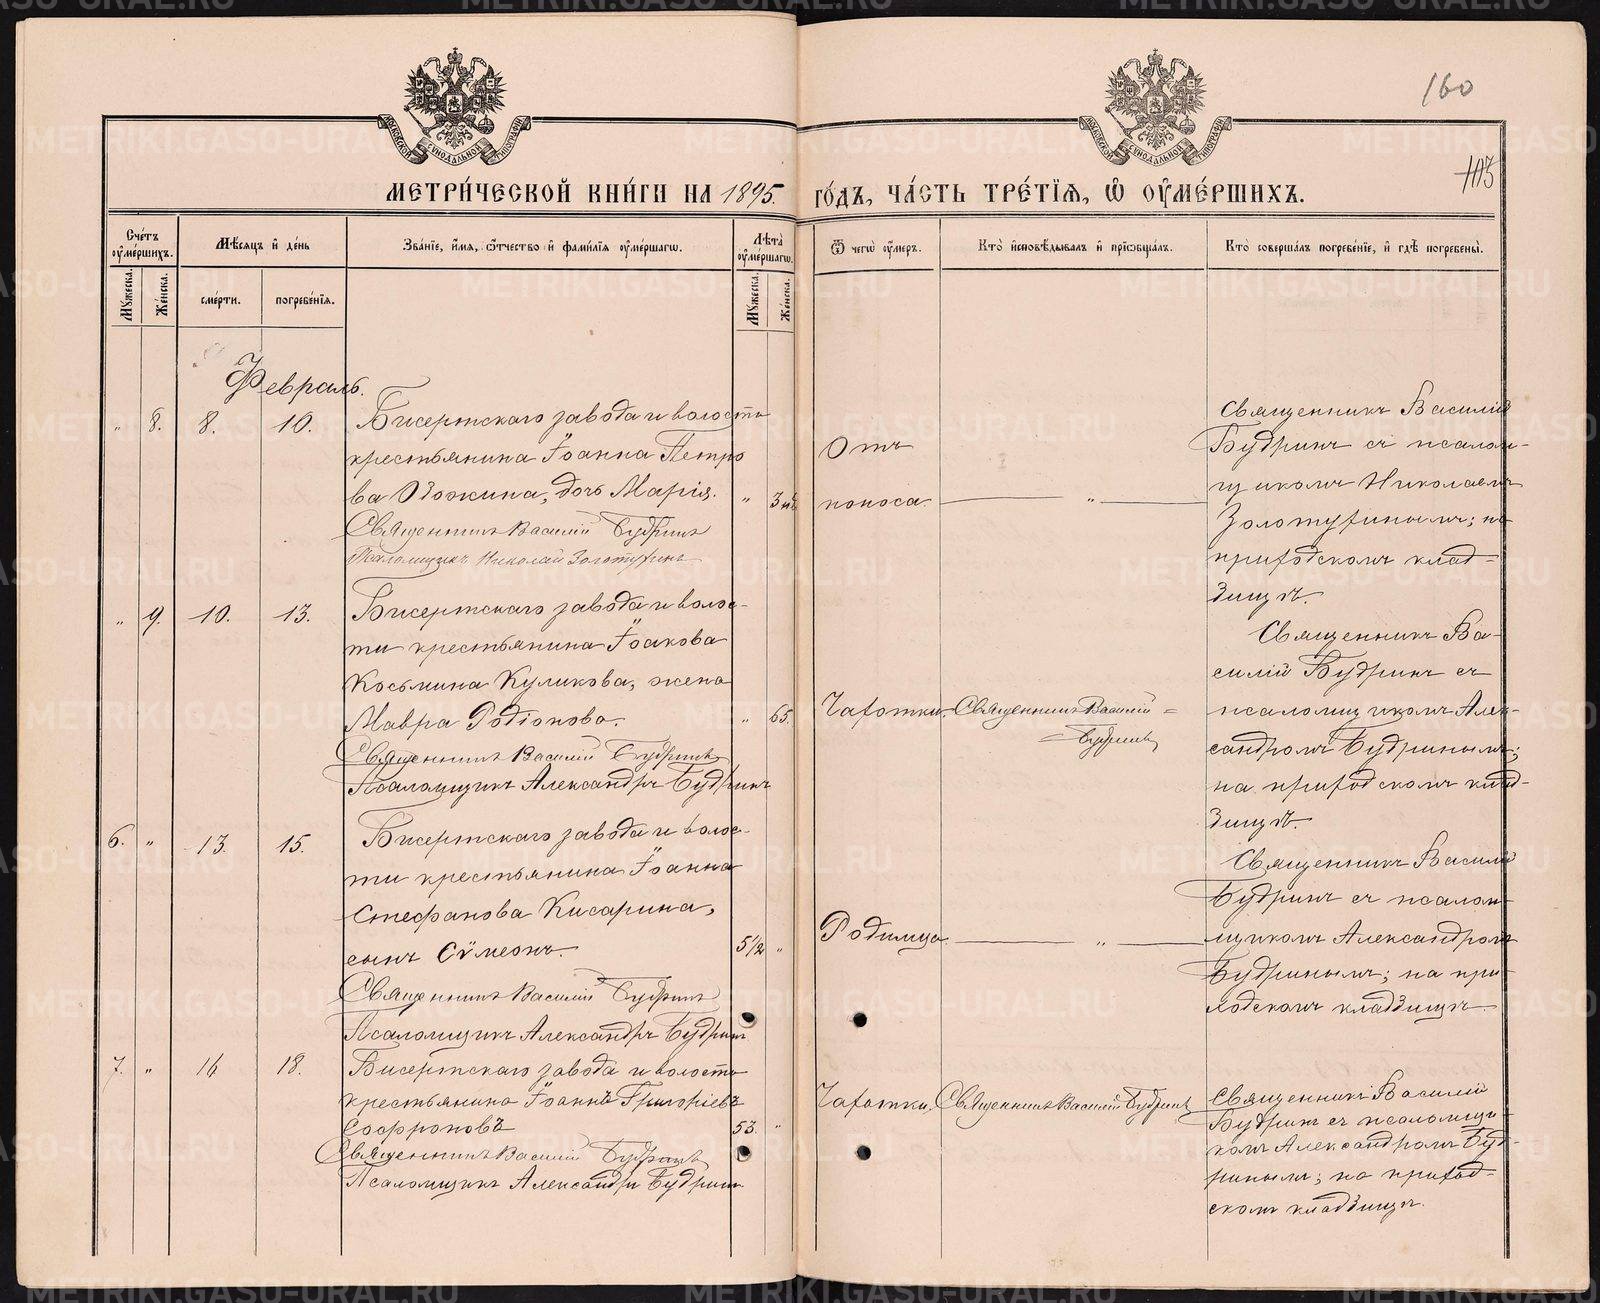 160
103
МЕТРИ́ЧЕСКОЙ КНИ́ГИ НА 1895.
ГО́ДЪ, ЧА́СТЬ ТРЕ́ТІѦ, Ѡ҆ ОУ҆МЕ́РШИХЪ.
Сче́тъ оу҆ме́ршихъ.
Му́жеска.
Же́нска.
Мѣ́сяцъ и҆ де́нь
сме́рти.
погребе́нїѧ.
Зва́нїе, и҆́мѧ, ѻ҆́тчество и҆ фами́лїѧ оу҆ме́ршагѡ.
Лѣ́та оу҆ме́ршагѡ.
Му́жеска.
Же́нска.
Ѿ чегѡ̀ оу҆́меръ.
Кто̀ и҆сповѣ́дывалъ и҆ прїѡбща́лъ.
Кто̀ соверша́лъ погребе́нїе, и҆ гдѣ̀ погребены̀.
Февраль.
" 8. 8. 10.
Бисертскаго завода и волости
крестьянина Іоанна Петро
ва Вожина, дочь Марія.
" 3 нед
Священникъ Василій Будринъ
Псаломщикъ Николай Золотухинъ
Отъ
поноса.
"
Священникъ Василій
Будринъ съ псалом-
щикомъ Николаемъ
Золотухинымъ; на
приходскомъ клад-
бищѣ.
" 9. 10. 13.
Бисертскаго завода и волос-
ти крестьянина Іоакова
Косьмина Куликова, жена
Мавра Родіонова.
" 65.
Священникъ Василій Будринъ
Псаломщикъ Александръ Будринъ
Чахотки.
Священникъ Василій
Будринъ
Священникъ Ва-
силій Будринъ съ
псаломщикомъ Алек-
сандромъ Будринымъ;
на приходскомъ клад-
бищѣ.
6. " 13. 15.
Бисертскаго завода и волос-
ти крестьянина Іоанна
Стефанова Кисарина,
сынъ Сѵмеонъ.
5 1/2 "
Священникъ Василій Будринъ
Псаломщикъ Александръ Будринъ
Родимца.
"
Священникъ Василій
Будринъ съ псалом-
щикомъ Александромъ
Будринымъ; на при-
ходскомъ кладбищѣ.
7. " 16 18.
Бисертскаго завода и волости
крестьянинъ Іоаннъ Григоріевъ
Софроновъ
53. "
Священникъ Василій Будринъ
Псаломщикъ Александръ Будринъ
Чахотки.
Священникъ Василій Будринъ
Священникъ Василій
Будринъ съ псаломщи-
комъ Александромъ Буд-
ринымъ; на приход-
скомъ кладбищѣ.